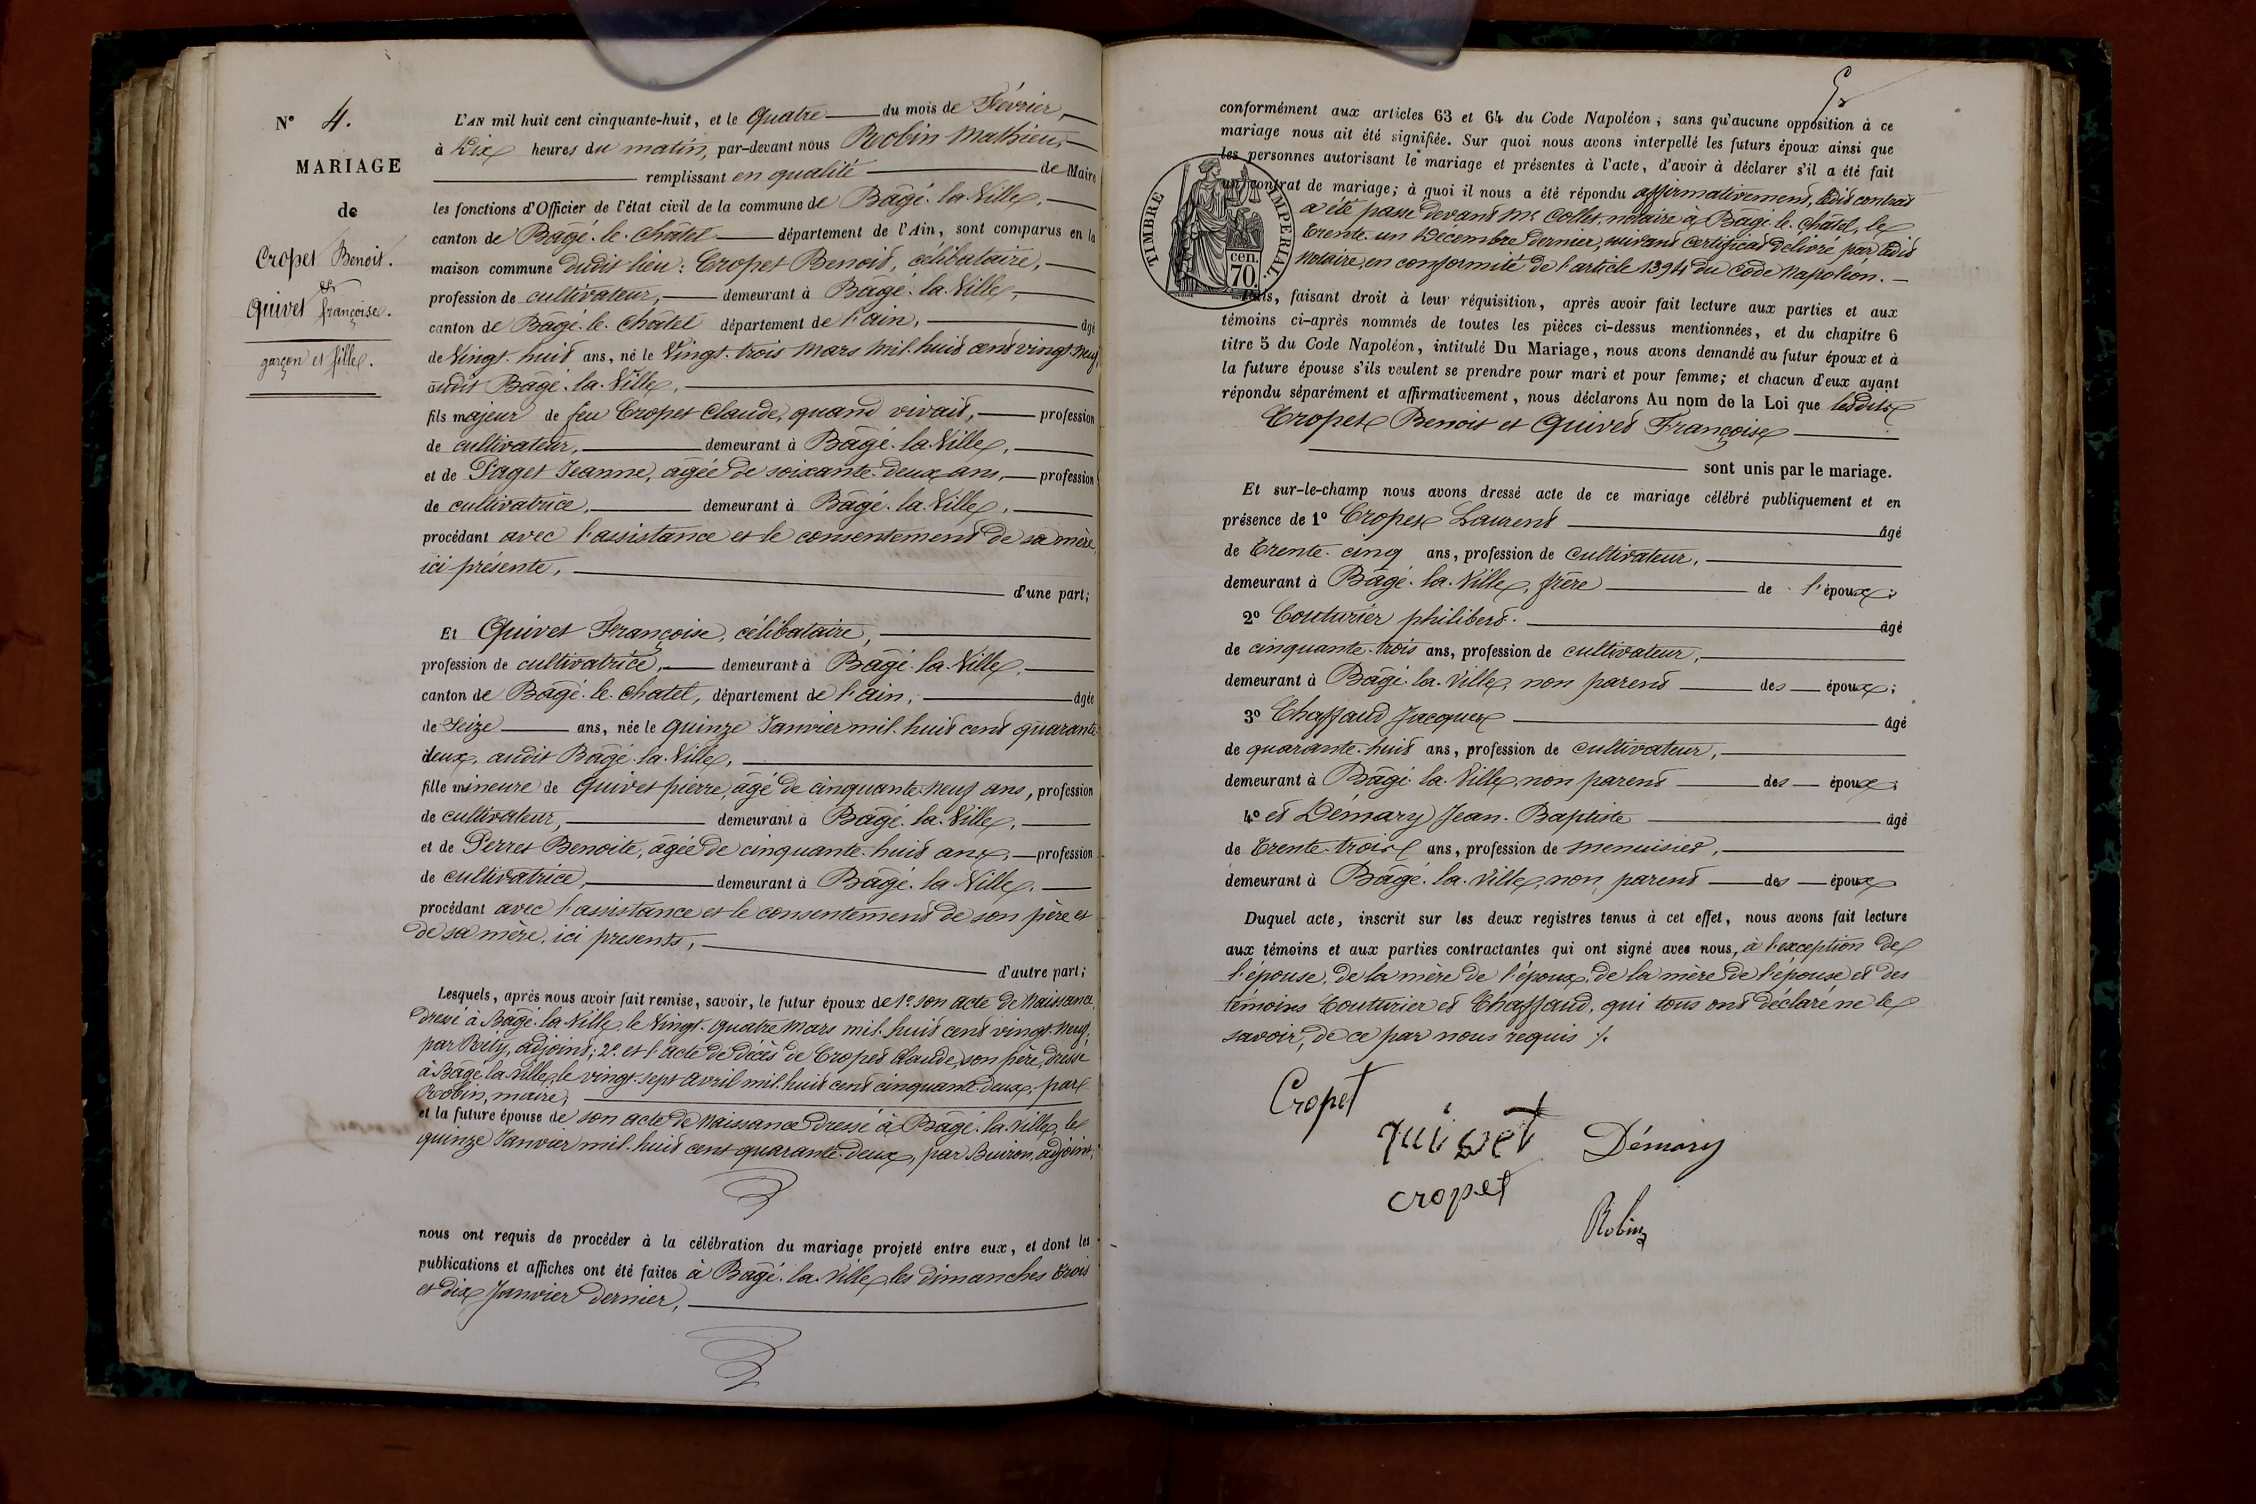 N° 4.
MARIAGE
de
Cropet Benoit.
et
Quivet françoise.
garçon et fille.
L'AN mil huit cent cinquante-huit, et le quatre du mois de Février,
à Dix heures du matin, par-devant nous Robin Mathieu,
remplissant en qualité de Maire
les fonctions d'Officier de l'état civil de la commune de Bâgé-la-Ville,
canton de Bâgé-le-Châtel département de l'Ain, sont comparus en la
maison commune dudit lieu : Cropet Benoit, célibataire,
profession de cultivateur, demeurant à Bâgé-la-Ville,
canton de Bâgé-le-Châtel département de l'ain, âgé
de Vingt-huit ans, né le Vingt-trois Mars mil-huit cent vingt-neuf,
audit Bâgé-la-Ville,
fils majeur de feu Cropet Claude, quand vivait, profession
de cultivateur, demeurant à Bâgé-la-Ville,
et de Paget Jeanne, âgée de soixante-deux ans, profession
de cultivatrice, demeurant à Bâgé-la-Ville,
procédant avec l'assistance et le consentement de sa mère
ici présente,
d'une part;
Et Quivet Françoise, célibataire,
profession de cultivatrice, demeurant à Bâgé-la-Ville,
canton de Bâgé-le-chatel, département de l'ain, âgée
de Seize ans, née le quinze Janvier mil-huit cent quarante-
deux, audit Bâgé-la-Ville,
fille mineure de Quivet pierre, âgé de cinquante-neuf ans, profession
de cultivateur, demeurant à Bâgé-la-Ville,
et de Perret Benoite, âgée de cinquante-huit ans, profession
de cultivatrice, demeurant à Bâgé-la-Ville,
procédant avec l'assistance et le consentement de son père et
de sa mère, ici presents,
d'autre part;
Lesquels, après nous avoir fait remise, savoir, le futur époux de 1° son acte de naissance
dressé à Bâgé-la-Ville, le Vingt-quatre Mars mil-huit cent vingt-neuf,
par adjoint; 2° et l'acte de décès de Cropet Claude, son père, dressé
à Bâgé-la-Ville, le vingt-sept avril mil-huit cent cinquante-deux, par
Robin, maire;
et la future épouse de son acte de naissance dressé à Bâgé-la-Ville, le
quinze Janvier mil-huit cent quarante-deux, par Buiron, adjoint;
nous ont requis de procéder à la célébration du mariage projeté entre eux, et dont les
publications et affiches ont été faites à Bâgé-la-Ville, les dimanches trois
et dix Janvier dernier,
conformément aux articles 63 et 64 du Code Napoléon; sans qu'aucune opposition à ce
mariage nous ait été signifiée. Sur quoi nous avons interpellé les futurs époux ainsi que
les personnes autorisant le mariage et présentes à l'acte, d'avoir à déclarer s'il a été fait
un contrat de mariage; à quoi il nous a été répondu affirmativement, ledit contrat
a été passé devant Me Collet, notaire à Bâgé-le-Châtel, le
trente-un Décembre dernier, suivant certificat délivré par ledit
notaire, en conformité de l'article 1394 du Code Napoléon.
TIMBRE IMPERIAL.
cen.
70.
Puis, faisant droit à leur réquisition, après avoir fait lecture aux parties et aux
témoins ci-après nommés de toutes les pièces ci-dessus mentionnées, et du chapitre 6
titre 5 du Code Napoléon, intitulé Du Mariage, nous avons demandé au futur époux et à
la future épouse s'ils veulent se prendre pour mari et pour femme; et chacun d'eux ayant
répondu séparément et affirmativement, nous déclarons Au nom de la Loi que lesdits
Cropet Benoit et Quivet Françoise
sont unis par le mariage.
Et sur-le-champ nous avons dressé acte de ce mariage célébré publiquement et en
présence de 1° Cropet Laurent âgé
de trente-cinq ans, profession de cultivateur,
demeurant à Bâgé-la-Ville, frère de l'époux;
2° Couturier philibert. âgé
de cinquante-trois ans, profession de cultivateur,
demeurant à Bâgé-la-Ville, non parent des époux;
3° Chaffaud Jacques âgé
de quarante-huit ans, profession de cultivateur,
demeurant à Bâgé-la-Ville, non parent des époux;
4° et Démary Jean-Baptiste âgé
de trente-trois ans, profession de menuisier,
demeurant à Bâgé-la-Ville, non parent des époux
Duquel acte, inscrit sur les deux registres tenus à cet effet, nous avons fait lecture
aux témoins et aux parties contractantes qui ont signé avec nous, à l'exception de
l'épouse, de la mère de l'époux, de la mère de l'épouse et des
témoins Couturier et Chaffaud, qui tous ont déclaré ne le
savoir, de ce par nous requis ./.
Cropet
quivet
Démary
cropet
Robin